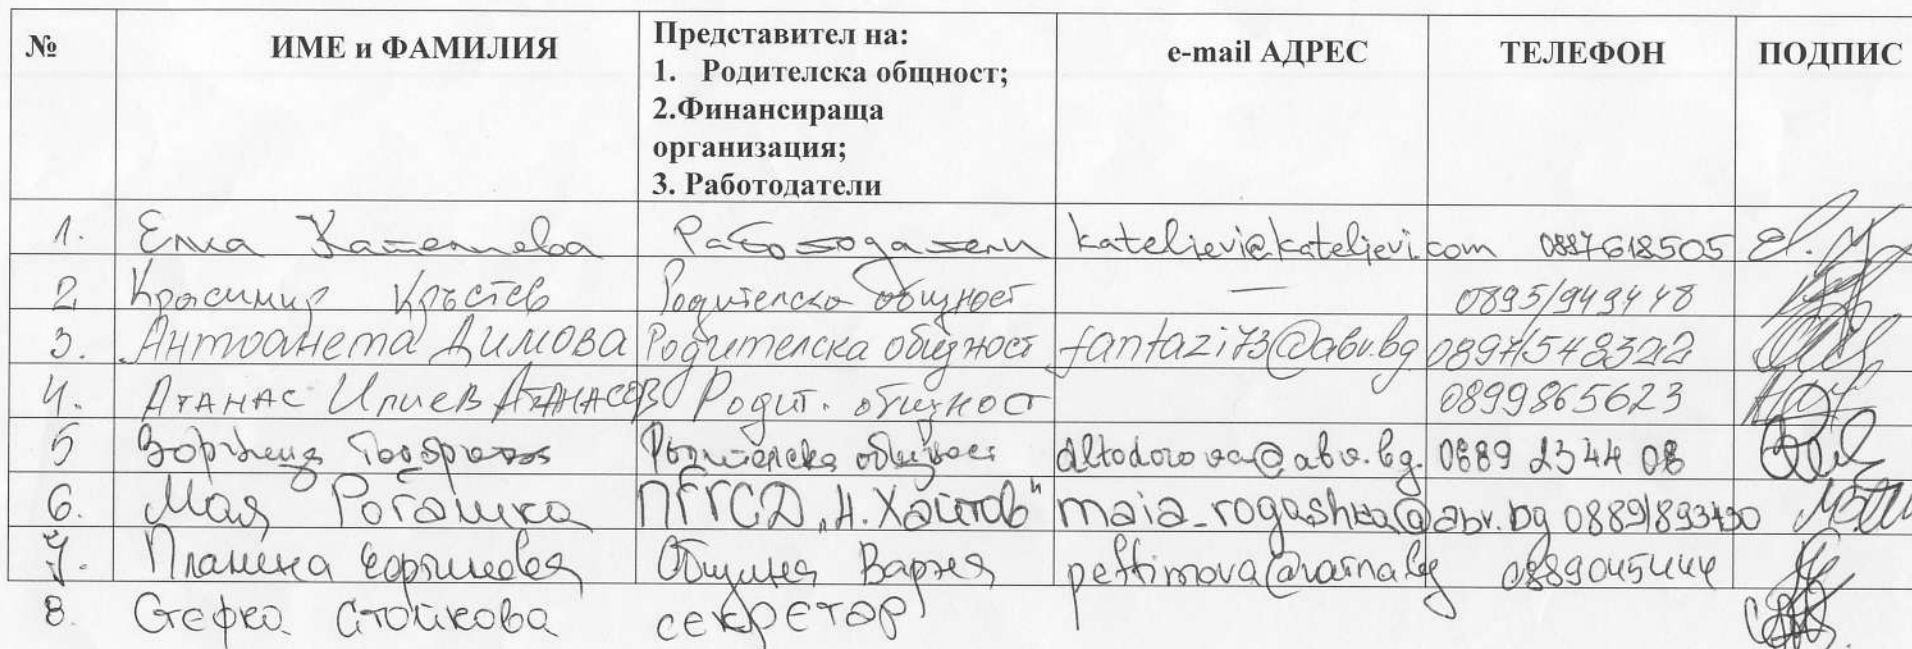 № ИМЕ и ФАМИЛИЯ Представител на: e-mail АДРЕС ТЕЛЕФОН ПОДПИС
1. Родителска общност;
2.Финансираща
организация;
3. Работодатели
1. Елка Работодатели kateljevi@kateljevi.com 0887618505
2 Красимир Кръстев Родителска общност — 0895/949448
3. Антоанета Димова Родителска общност fantazi73@abv.bg 0897/548322
4. Атанас Илиев Атанасов Родит. общност 0899865623
5 Родителска общност dltodorova@abv.bg. 0889 2344 08
6. Мая Рогашка ПГГСД „Н. Хайтов" maia_rogashka@abv.bg 0889/893430
7. Пламена Община Варна 0889045444
8. Стефка Стойкова секретар